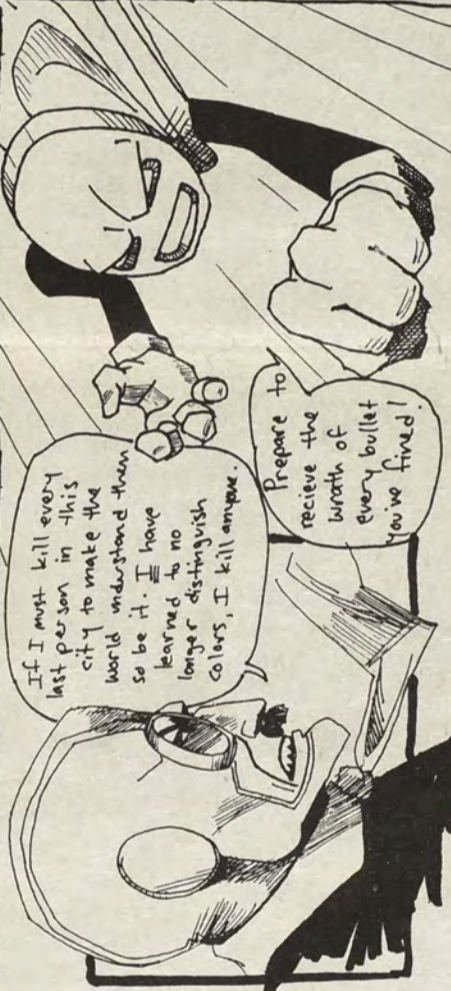 If I must kill every
last person in this
city to make the
world understand then
so be it. I have
learned to no
longer distinguish
colors, I kill anyone.
Prepare to
recieve the
wrath of
every bullet
you've fired!